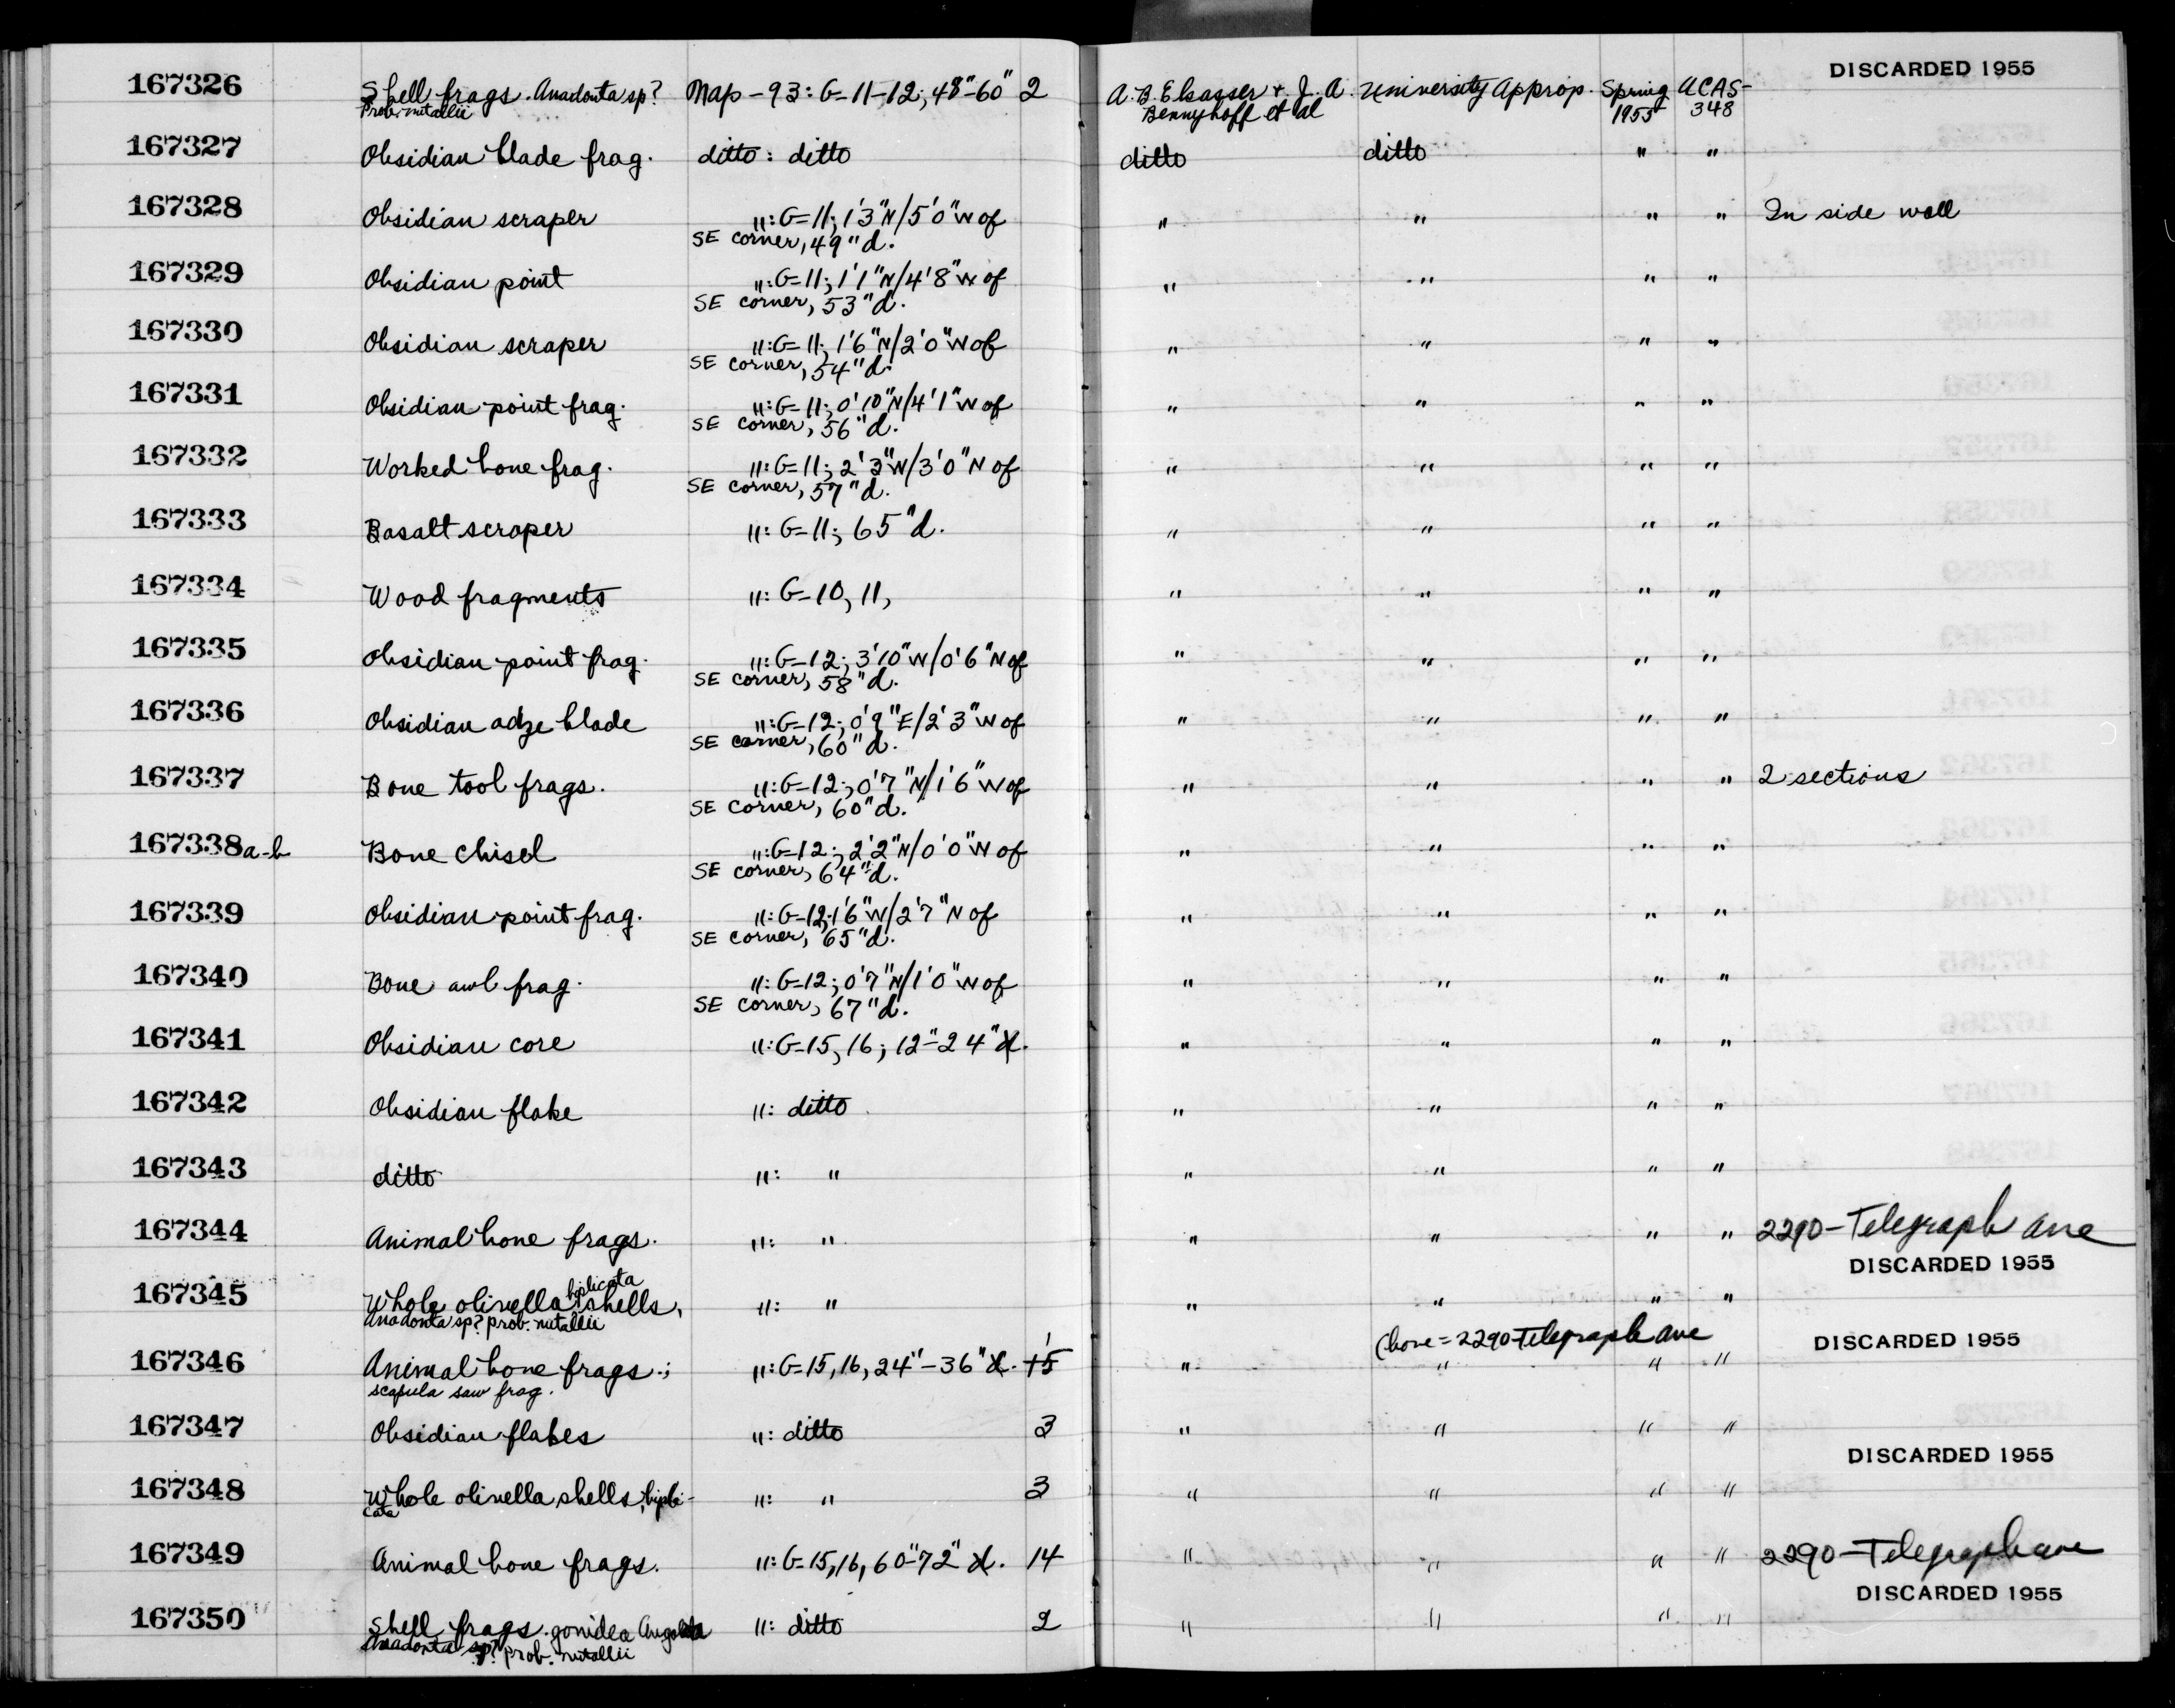 167326 Shell frags. Anadonta sp? Map-93: G-11-12; 48"-60" 2 A.B. Elsasser & J.A. University Approp. Spring UCAS- DISCARDED 1955
Prob. nutallii Bennyhoff et al 1955 348
167327 Obsidian blade frag. ditto: ditto ditto ditto " "
167328 Obsidian scraper ": G-11; 1'3"N/5'0"W of " " " " In side wall
SE corner, 49"d.
167329 Obsidian point ": G-11; 1'1"N/4'8"W of " " " "
SE corner, 53"d.
167330 Obsidian scraper ": G-11; 1'6"N/2'0"W of " " " "
SE corner, 54"d.
167331 Obsidian point frag. ": G-11; 0'10"N/4'1"W of " " " "
SE corner, 56"d.
167332 Worked bone frag. ": G-11; 2'3"W/3'0"N of " " " "
SE corner, 57"d.
167333 Basalt scraper ": G-11; 65"d. " " " "
167334 Wood fragments ": G-10, 11, " " " "
167335 Obsidian point frag. ": G-12; 3'10"W/0'6"N of " " " "
SE corner, 58"d.
167336 Obsidian adze blade ": G-12; 0'9"E/2'3"W of " " " "
SE corner, 60"d.
167337 Bone tool frags. ": G-12; 0'7"N/1'6"W of " " " " 2 sections
SE corner, 60"d.
167338a-b Bone chisel ": G-12; 2'2"N/0'0"W of " " " "
SE corner, 64"d.
167339 Obsidian point frag. ": G-12; 1'6"W/2'7"N of " " " "
SE corner, 65"d.
167340 Bone awl frag. ": G-12; 0'7"N/1'0"W of " " " "
SE corner, 67"d.
167341 Obsidian core ": G-15, 16; 12"-24"d. " " " "
167342 Obsidian flake ": ditto " " " "
167343 ditto ": " " " " "
167344 Animal bone frags. ": " " " " " 2290-Telegraph Ave
DISCARDED 1955
167345 Whole olivella biplicata shells, ": " " " " "
Anadonta sp? prob. nutallii
(bone = 2290 Telegraph Ave DISCARDED 1955
167346 Animal bone frags.; ": G-15, 16, 24"-36"d. 15 " " " "
scapula saw frag.
167347 Obsidian flakes ": ditto 3 " " " "
DISCARDED 1955
167348 Whole olivella shells, bipli- ": " 3 " " " "
cata
167349 Animal bone frags. ": G-15, 16, 60"-72"d. 14 " " " " 2290-Telegraph ave
DISCARDED 1955
167350 Shell frags. gonidea ": ditto 2 " " " "
Anadonta sp? prob. nutallii